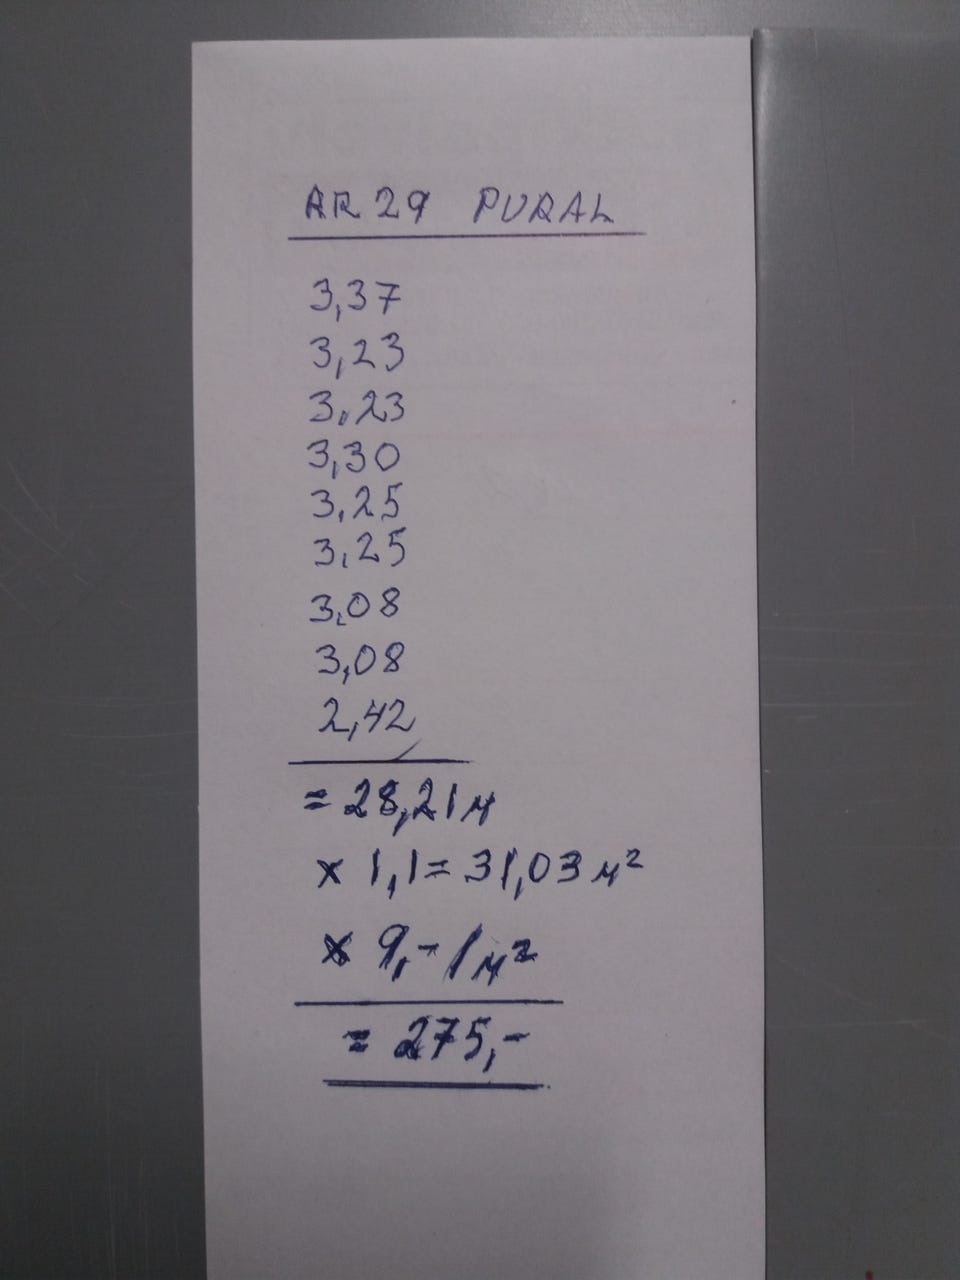 AR 29 PURAL
3,37
3,23
3,23
3,30
3,25
3,25
3,08
3,08
2,42
= 28,21 м
x 1,1 = 31,03 м²
x 9,- 1 м²
= 275,-